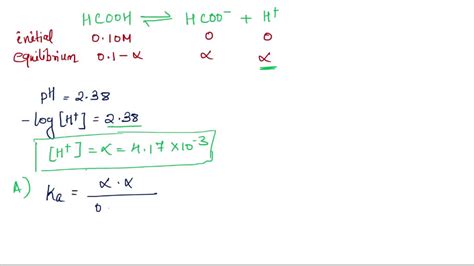 HCOOH ⇌ HCOO⁻ + H⁺
initial 0.10M 0 0
equilibrium 0.1-α α α
pH = 2.38
- log [H⁺] = 2.38
[H⁺] = α = 4.17 × 10⁻³
A) Ka = α · α / 0.